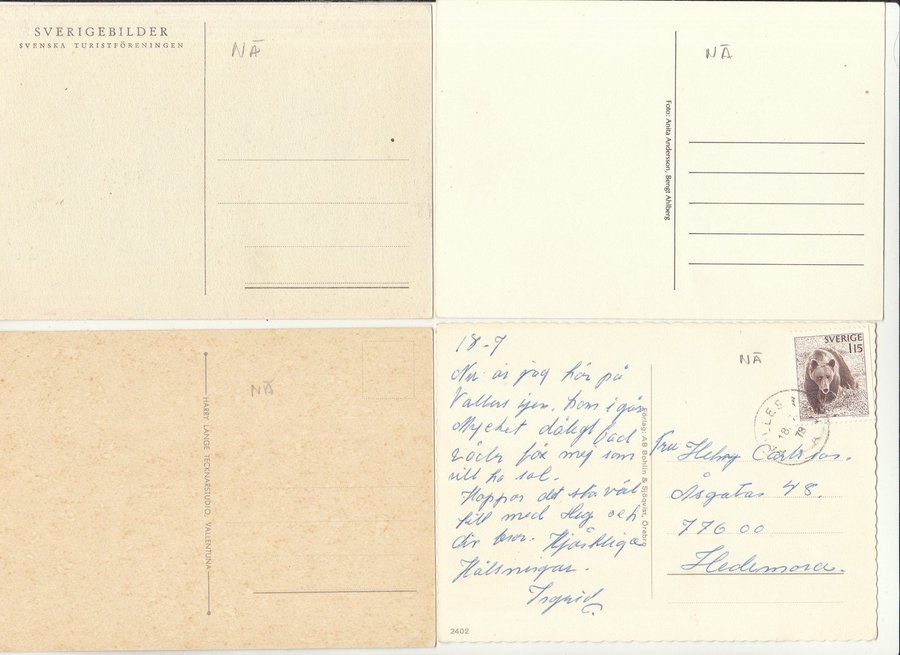 SVERIGEBILDER
SVENSKA TURISTFÖRENINGEN
NÄ
NÄ
Foto: Anita Andersson, Bengt Ahlberg
NÄ
HARRY LANGE TECKNARSTUDIO, VALLENTUNA
18-7
Nu är jag här på
Vallers igen. Kom igår
Mycket dåligt bad
väder för mej som
vill ha sol.
Hoppas det ska väl
till med Heg och
din bror. Hjärtliga
Hälsningar.
Ingrid
2402
Förlag: AB Bohlin & Sjöqvist, Örebro
NÄ
SVERIGE
115
18.
78
Fru Helny Carlsson.
Åsgatan 48.
776 00
Hedemora.